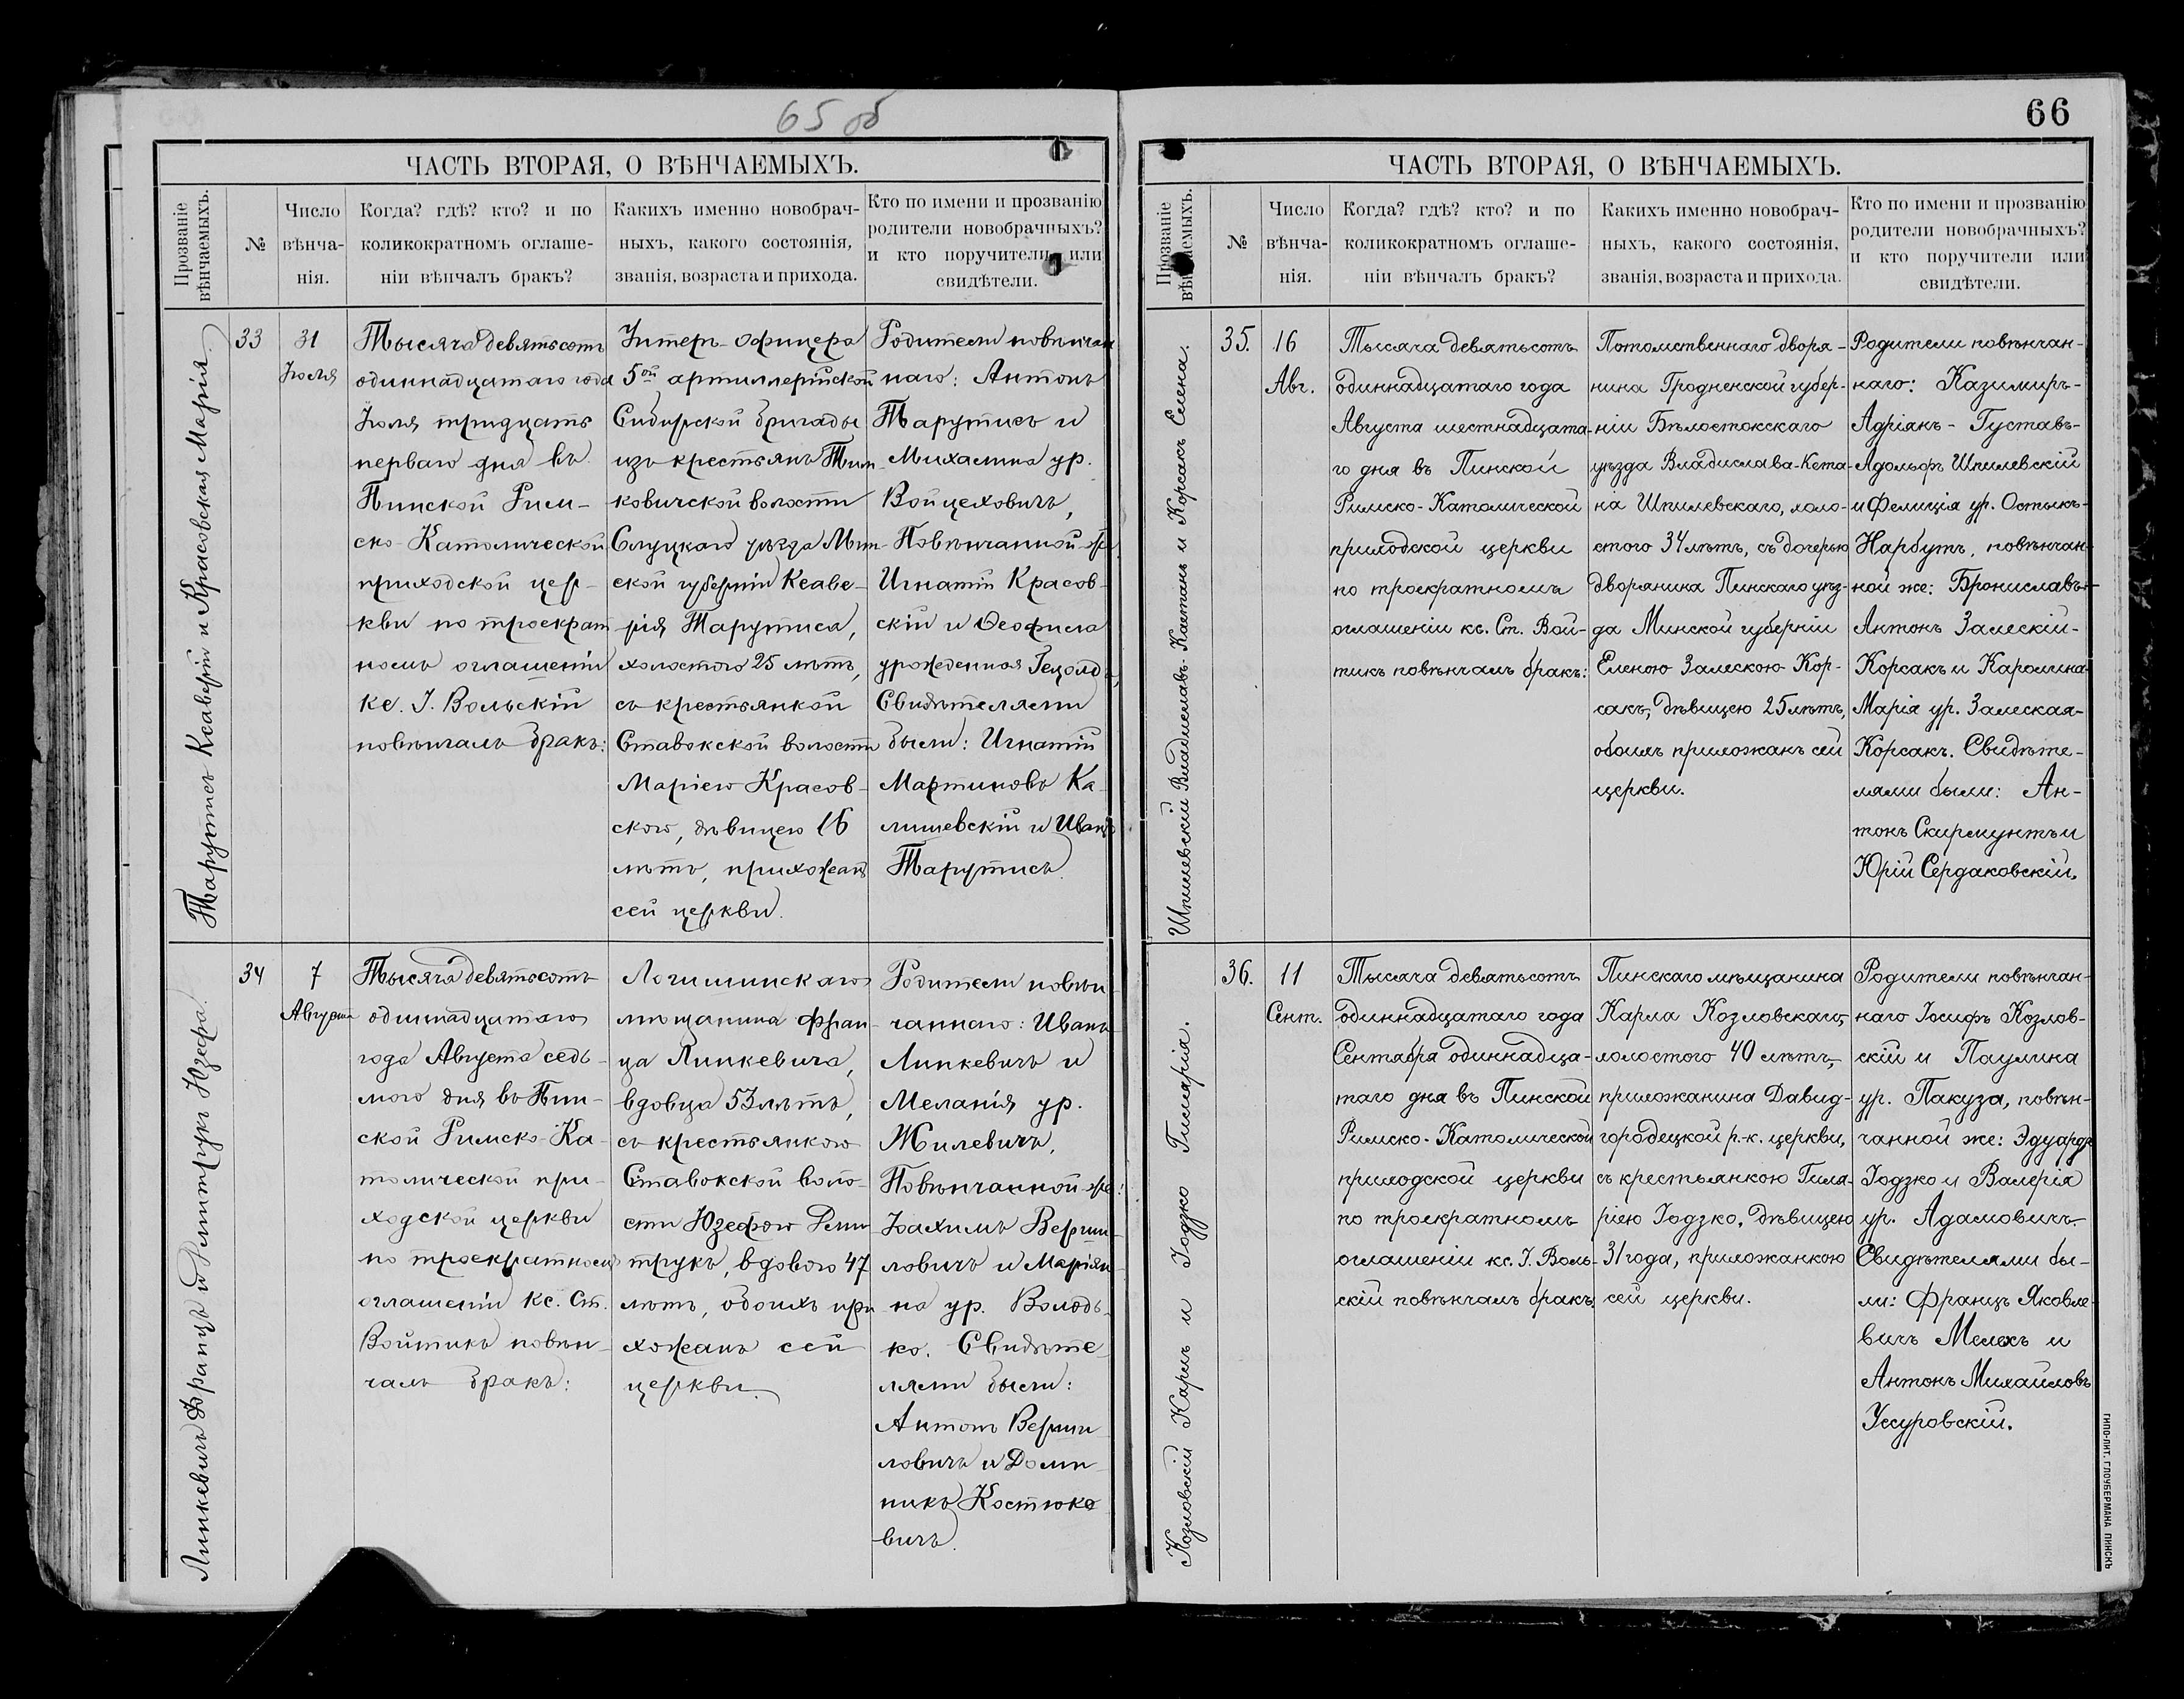 65 об
ЧАСТЬ ВТОРАЯ, О ВѢНЧАЕМЫХЪ.
Прозваніе
вѣнчаемыхъ.
№
Число
вѣнча-
нія.
Когда? гдѣ? кто? и по
коликократномъ оглаше-
ніи вѣнчалъ бракъ?
Какихъ именно новобрач-
ныхъ, какого состоянія,
званія, возраста и прихода.
Кто по имени и прозванію
родители новобрачныхъ?
и кто поручители или
свидѣтели.
Тарутисъ Ксаверій и Красовская Марія.
33
31
Іюля
Тысяча девятьсотъ
одиннадцатаго года
Іюля тридцать
перваго дня въ
Пинской Рим-
ско-Католической
приходской цер-
кви по троекрат
номъ оглашеніи
кс. І. Вольскій
повѣнчалъ бракъ:
Унтеръ-офицера
5ой артиллерійской
Сибирской бригады
изъ крестьянъ Тим-
ковичской волости
Слуцкаго уѣзда Мин-
ской губерніи Ксаве-
рія Тарутиса,
холостого 25 лѣтъ,
съ крестьянкой
Ставокской волости
Маріею Красов-
скою, дѣвицею 16
лѣтъ, прихожанъ
сей церкви.
Родители повѣнчан
наго: Антонъ
Тарутисъ и
Михалина ур.
Войцеховичъ,
Повѣнчанной-же
Игнатій Красов-
скій и Ѳеофила
урожденная Гецолдъ,
Свидѣтелями
были: Игнатій
Мартиновъ Ка-
лишевскій и Иванъ
Тарутисъ.
Линкевичъ Францъ и Дмитрукъ Юзефа.
34
7
Августа
Тысяча девятьсотъ
одиннадцатаго
года Августа седь-
мого дня въ Пин-
ской Римско-Ка-
толической при-
ходской церкви
по троекратномъ
оглашеніи кс. Ст.
Войтикъ повѣн-
чалъ бракъ:
Логишинскаго
мѣщанина Фран-
ца Линкевича,
вдовца 53 лѣтъ,
съ крестьянкою
Ставокской воло-
сти Юзефою Дми
трукъ, вдовою 47
лѣтъ, обоихъ при
хожанъ сей
церкви.
Родители повѣн-
чаннаго: Иванъ
Линкевичъ и
Меланія ур.
Жилевичъ,
Повѣнчанной-же:
Іоахимъ Верши-
ловичъ и Маріян-
на ур. Володь-
ко. Свидѣте-
лями были:
Антонъ Верши
ловичъ и Доми-
никъ Костюке
вичъ.
66
ЧАСТЬ ВТОРАЯ, О ВѢНЧАЕМЫХЪ.
Прозваніе
вѣнчаемыхъ.
№
Число
вѣнча-
нія.
Когда? гдѣ? кто? и по
коликократномъ оглаше-
ніи вѣнчалъ бракъ?
Какихъ именно новобрач-
ныхъ, какого состоянія,
званія, возраста и прихода.
Кто по имени и прозванію
родители новобрачныхъ?
и кто поручители или
свидѣтели.
Шпилевскій Владиславъ-Каетанъ и Корсакъ Елена.
35.
16
Авг.
Тысяча девятьсотъ
одиннадцатаго года
Августа шестнадцата-
го дня въ Пинской
Римско-Католической
приходской церкви
по троекратномъ
оглашеніи кс. Ст. Вой-
тикъ повѣнчалъ бракъ:
Потомственнаго дворя-
нина Гродненской губер-
ніи Бѣлостокскаго
уѣзда Владислава-Кета-
на Шпилевскаго, холо-
стого 34 лѣтъ, съ дочерью
дворянина Пинскаго уѣз-
да Минской губерніи
Еленою Залескою-Кор-
сакъ, дѣвицею 25 лѣтъ,
обоихъ прихожанъ сей
церкви.
Родители повѣнчан-
наго: Казимиръ-
Адріянъ-Густавъ-
Адольфъ Шпилевскій
и Фелиція ур. Остыкъ-
Нарбутъ, повѣнчан-
ной же: Брониславъ-
Антонъ Залескій-
Корсакъ и Каролина-
Марія ур. Залеская-
Корсакъ. Свидѣте-
лями были: Ан-
тонъ Скирмунтъ и
Юрій Сердаковскій.
Козловскій Карлъ и Годзко Гиларія.
36.
11
Сент.
Тысяча девятьсотъ
одиннадцатаго года
Сентября одиннадца-
таго дня въ Пинской
Римско-Католической
приходской церкви
по троекратномъ
оглашеніи кс. І. Воль-
скій повѣнчалъ бракъ
Пинскаго мѣщанина
Карла Козловскаго,
холостого 40 лѣтъ,
прихожанина Давид-
городецкой р.-к. церкви,
съ крестьянкою Гиля-
ріею Годзко, дѣвицею
31 года, прихожанкою
сей церкви.
Родители повѣнчан-
наго Іосифъ Козлов-
скій и Паулина
ур. Пакуза, повѣн-
чанной же: Эдуардъ
Годзко и Валерія
ур. Адамовичъ.
Свидѣтелями бы-
ли: Францъ Яковле-
вичъ Мелехъ и
Антонъ Михайловъ
Уссуровскій.
ТИПО-ЛИТ. ГЛОУБЕРМАНА ПИНСКЪ